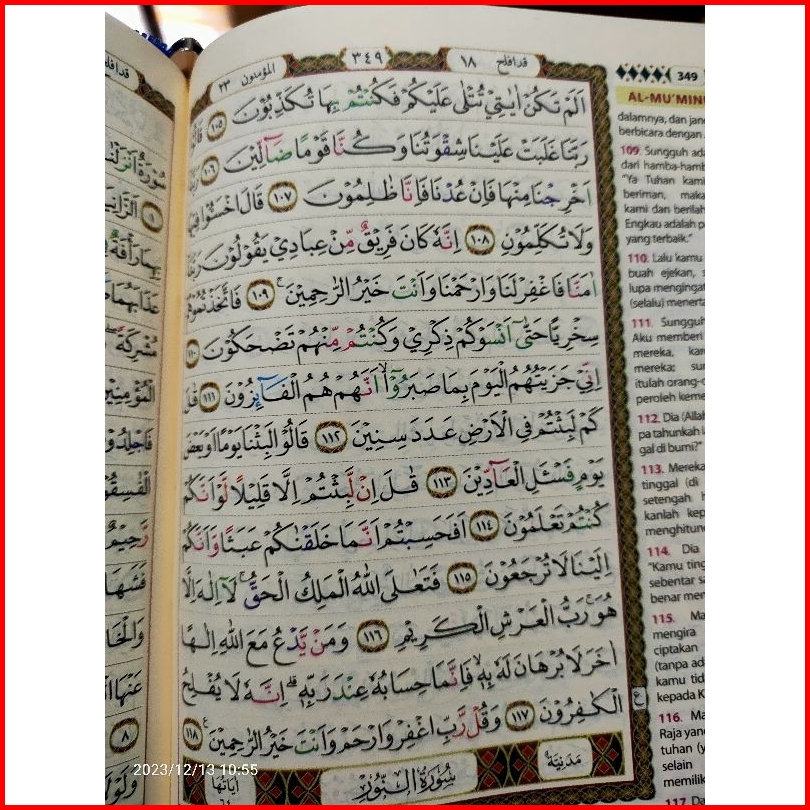 قدافلح ١٨
٣٤٩
المؤمنون ٢٣
اَلَمْ تَكُنْ اٰيٰتِيْ تُتْلٰى عَلَيْكُمْ فَكُنْتُمْ بِهَا تُكَذِّبُوْنَ ١٠٥
رَبَّنَا غَلَبَتْ عَلَيْنَا شِقْوَتُنَا وَكُنَّا قَوْمًا ضَاۤلِّيْنَ ١٠٦
اَخْرِجْنَا مِنْهَا فَاِنْ عُدْنَا فَاِنَّا ظٰلِمُوْنَ ١٠٧ قَالَ اخْسَـُٔوْا فِيْهَا
وَلَا تُكَلِّمُوْنِ ١٠٨ اِنَّهٗ كَانَ فَرِيْقٌ مِّنْ عِبَادِيْ يَقُوْلُوْنَ رَبَّنَا
اٰمَنَّا فَاغْفِرْ لَنَا وَارْحَمْنَا وَاَنْتَ خَيْرُ الرّٰحِمِيْنَ ۚ ١٠٩ فَاتَّخَذْتُمُوْهُمْ
سِخْرِيًّا حَتّٰٓى اَنْسَوْكُمْ ذِكْرِيْ وَكُنْتُمْ مِّنْهُمْ تَضْحَكُوْنَ ١١٠
اِنِّيْ جَزَيْتُهُمُ الْيَوْمَ بِمَا صَبَرُوْٓا ۙاَنَّهُمْ هُمُ الْفَاۤىِٕزُوْنَ ١١١ قٰلَ
كَمْ لَبِثْتُمْ فِى الْاَرْضِ عَدَدَ سِنِيْنَ ١١٢ قَالُوْا لَبِثْنَا يَوْمًا اَوْ بَعْضَ
يَوْمٍ فَسْـَٔلِ الْعَاۤدِّيْنَ ١١٣ قٰلَ اِنْ لَّبِثْتُمْ اِلَّا قَلِيْلًا لَّوْ اَنَّكُمْ
كُنْتُمْ تَعْلَمُوْنَ ١١٤ اَفَحَسِبْتُمْ اَنَّمَا خَلَقْنٰكُمْ عَبَثًا وَّاَنَّكُمْ
اِلَيْنَا لَا تُرْجَعُوْنَ ١١٥ فَتَعٰلَى اللّٰهُ الْمَلِكُ الْحَقُّ ۚ لَآ اِلٰهَ اِلَّا
هُوَ ۚ رَبُّ الْعَرْشِ الْكَرِيْمِ ١١٦ وَمَنْ يَّدْعُ مَعَ اللّٰهِ اِلٰهًا
اٰخَرَ لَا بُرْهَانَ لَهٗ بِهٖۙ فَاِنَّمَا حِسَابُهٗ عِنْدَ رَبِّهٖۗ اِنَّهٗ لَا يُفْلِحُ
الْكٰفِرُوْنَ ١١٧ وَقُلْ رَّبِّ اغْفِرْ وَارْحَمْ وَاَنْتَ خَيْرُ الرّٰحِمِيْنَ ١١٨
ع
مَدَنِيَّة
سُوْرَةُ النُّوْر
اٰيَاتُهَا ٦٤
349
AL-MU'MINU
dalamnya, dan jan
berbicara dengan
109. Sungguh ada
dari hamba-hamb
"Ya Tuhan kami
beriman, maka
kami dan berilah
Engkau adalah p
yang terbaik."
110. Lalu kamu
buah ejekan, s
lupa mengingat
(selalu) menerta
111. Sungguh
Aku memberi
mereka, kar
mereka; su
itulah orang-o
peroleh keme
112. Dia (Alla
pa tahunkah
gal di bumi?"
113. Mereka
tinggal (di
setengah
kanlah kep
menghitun
114. Dia
"Kamu ting
sebentar sa
benar men
115. Ma
mengira
ciptakan
(tanpa ad
kamu tid
kepada K
116. Ma
Raja yan
tuhan (y
selain
memilik
117. Da
2023/12/13 10:55